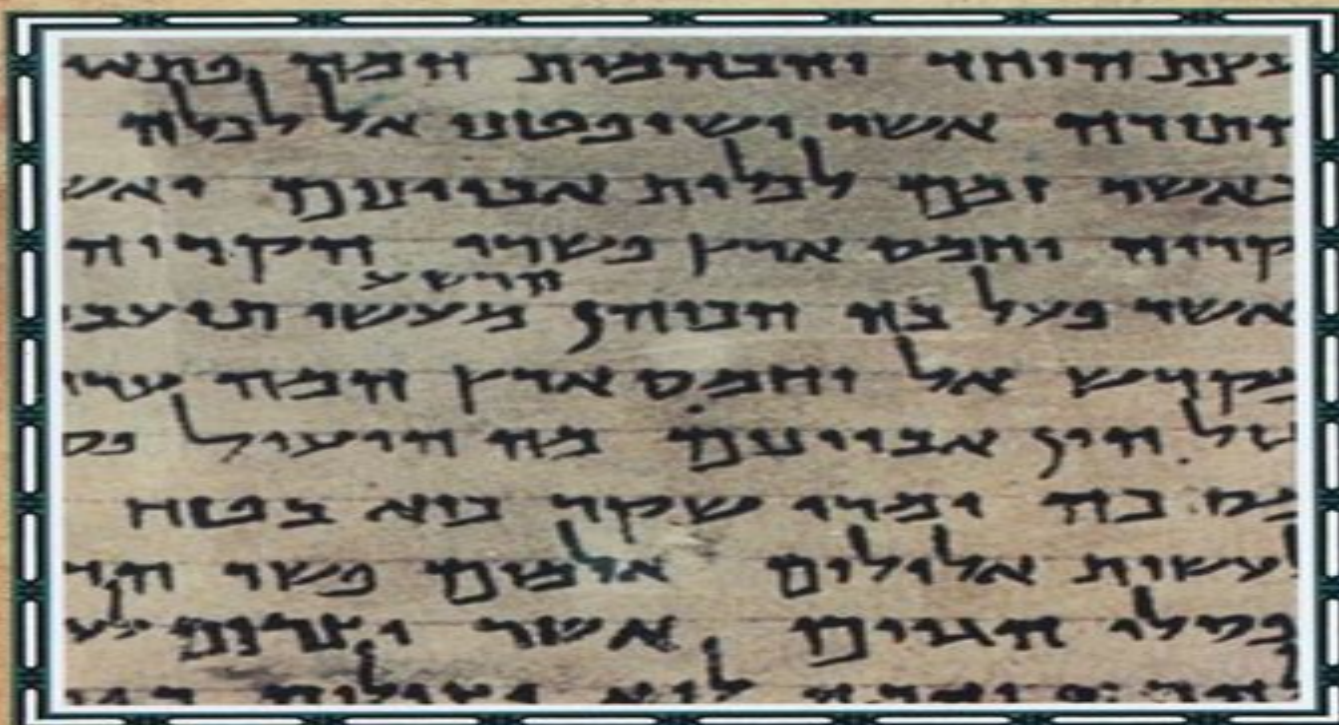 עצת היחד והבהמות המה פתאי
התורה אשר ישופטנו אל לכלה
כאשר זמם לכלות אביונים
קריה וחמס ארץ פשרו הקריה
הרשע
אשר פעל בה הכוהן מעשי
מקדש אל וחמס ארץ המה ערי
הון אביונים מה הועיל
ומרי שקר כיא בטח
לעשות אלילים אלמים פשר
פסלי הגוים אשר יצרום